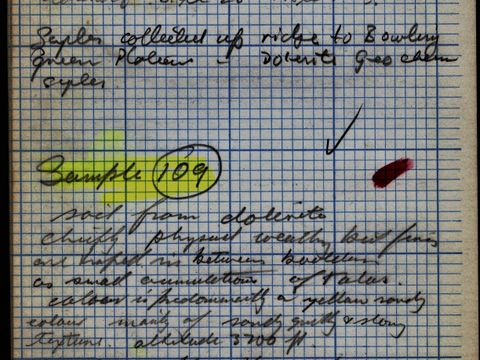 Samples collected up ridge to Bowling
Green Plateau - Dolerite Geochem
samples
Sample 109
soil from dolerite
chiefly physical weathering but fines
are trapped in between boulders
as small accumulations of talus.
colour is predominantly a yellow sandy
colour mainly of sandy gritty & stony
texture. altitude 3200 ft.